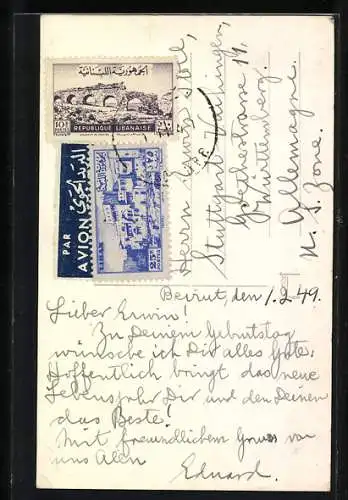 الجمهورية اللبنانية
REPUBLIQUE LIBANAISE
PAR
AVION
LIBAN
25 P
Herrn Erwin
Stuttgart
Goethestrasse 19.
Württemberg.
Allemagne.
U. S. Zone.
Beirut, den 1.2.49.
Lieber Erwin!
Zu Deinem Geburtstag
wünsche ich Dir alles Gute.
Hoffentlich bringt das neue
Lebensjahr Dir und den Deinen
das Beste!
Mit freundlichem Gruss von
uns Allen
Eduard.